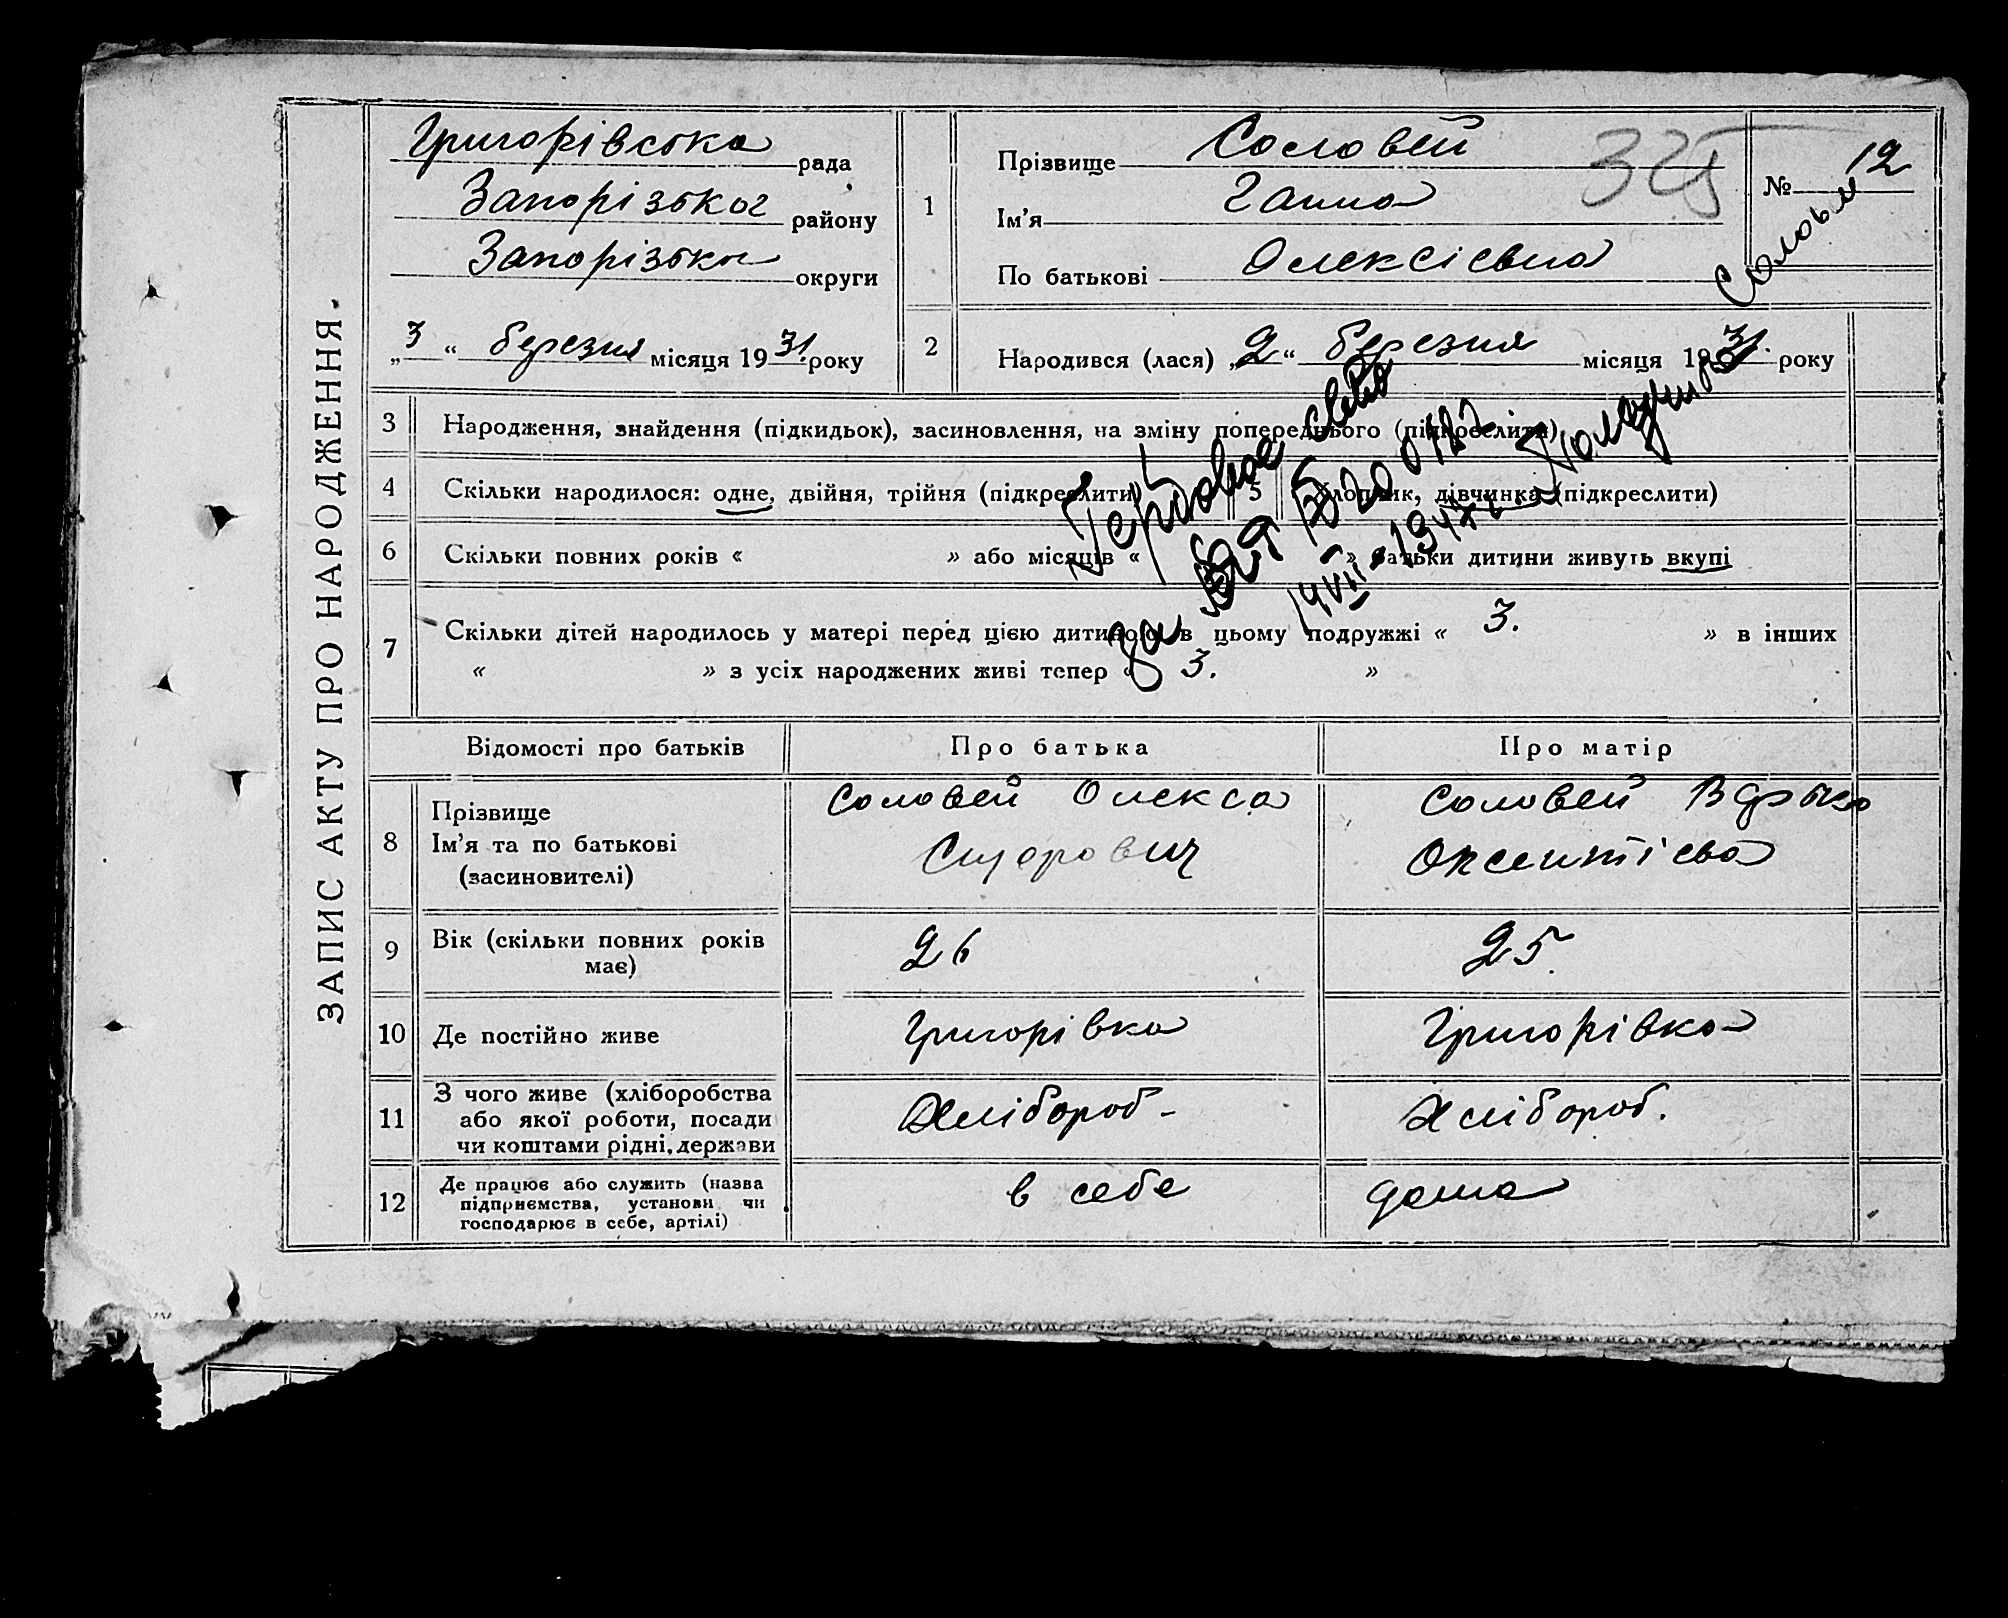 ЗАПИС АКТУ ПРО НАРОДЖЕННЯ.
Григорівська рада
Запорізького району
Запорізької округи
„3“ березня місяця 1931 року
1
Прізвище Соловей
Ім'я Ганна
По батькові Олексієвна
325
№ 12
2
Народився (лася) „2“ березня місяця 1931. року
3 Народження, знайдення (підкидьок), засиновлення, на зміну попереднього (підкреслити)
4 Скільки народилося: одне, двійня, трійня (підкреслити) 5 Хлопчик, дівчинка (підкреслити)
6 Скільки повних років « » або місяців « » Батьки дитини живуть вкупі
7 Скільки дітей народилось у матері перед цією дитиною в цьому подружжі « 3. » в інших
« » з усіх народжених живі тепер « 3. »
Гербовое свѣд
за № 020
14 VII - 1947 г. Получила
Соловей
Відомості про батьків Про батька Про матір
8 Прізвище
Ім'я та по батькові
(засиновителі)
Соловей Олекса
Сидорович
Соловей
Оксентієва
9 Вік (скільки повних років має) 26 25.
10 Де постійно живе Григорівка Григорівка
11 З чого живе (хліборобства
або якої роботи, посади
чи коштами рідні, держави
Хлібороб- Хлібороб.
12 Де працює або служить (назва
підприємства, установи чи
господарює в себе, артілі)
в себе дома